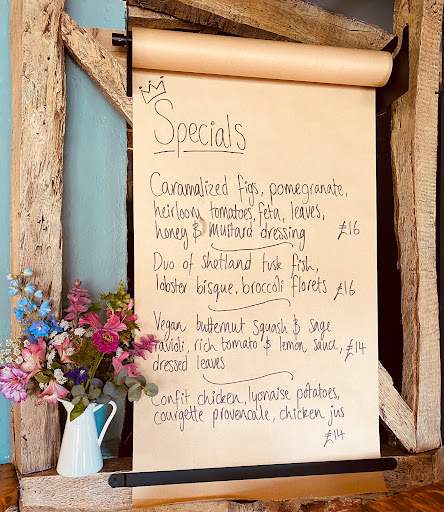 Specials
Caramalized figs, pomegranate,
heirloom tomatoes, feta, leaves,
honey & mustard dressing £16
Duo of shetland tusk fish,
lobster bisque, broccoli florets £16
Vegan butternut squash & sage
ravioli, rich tomato & lemon sauce, £14
dressed leaves
Confit chicken, lyonaise potatoes,
courgette provencale, chicken jus
£14